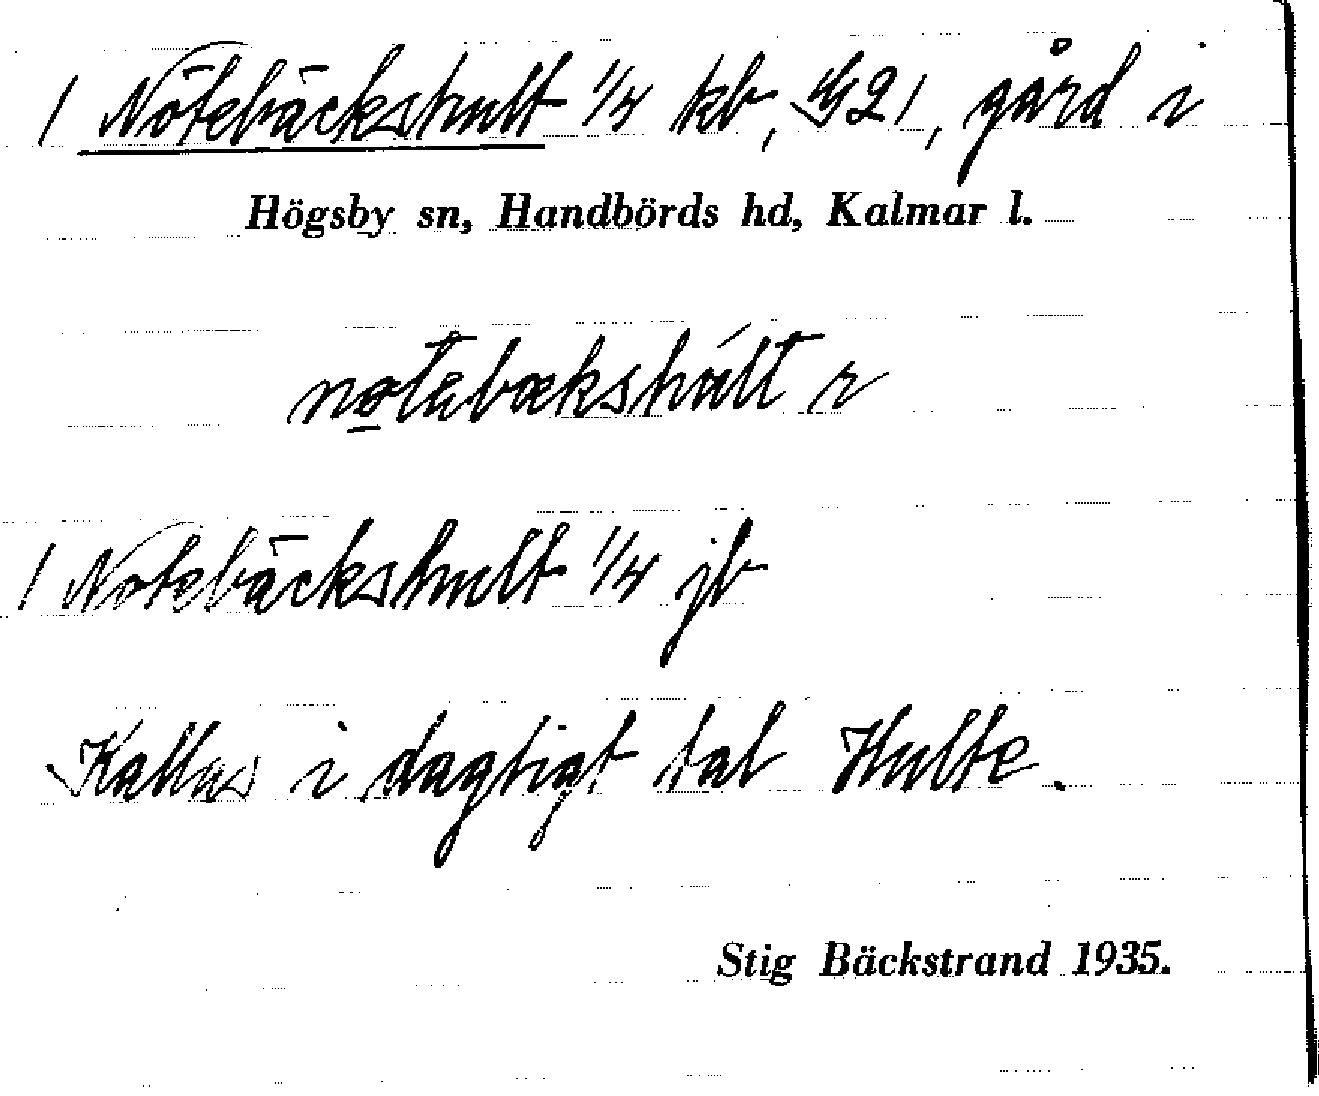 / Nötebäckshult 1/4 kb, G21, gård i
Högsby sn, Handbörds hd, Kalmar l.
nøtebækshúlt r
/ Notebäckshult 1/4 jb
Kallas i dagligt tal Hulte.
Stig Bäckstrand 1935.